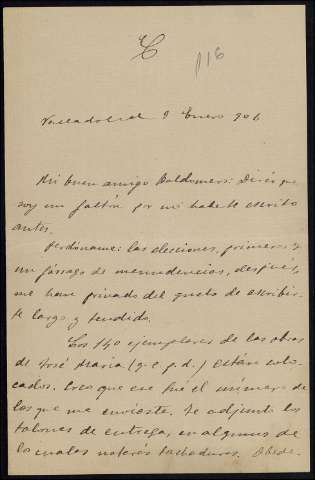 C
116
Valladolid 9 Enero 906
Mi buen amigo Baldomero: Dirás que
soy un faltón por no haberte escrito
antes.
Perdóname: las elecciones, primero, y
un fárrago de menudencias, después,
me han privado del gusto de escribir-
te largo y tendido.
Los 140 ejemplares de las obras
de José María (q. e. p. d.) están colo-
cados. Creo que ese fué el número de
los que me enviaste. Te adjunto los
talones de entrega, en algunos de
los cuales notarás tachaduras. Obede-